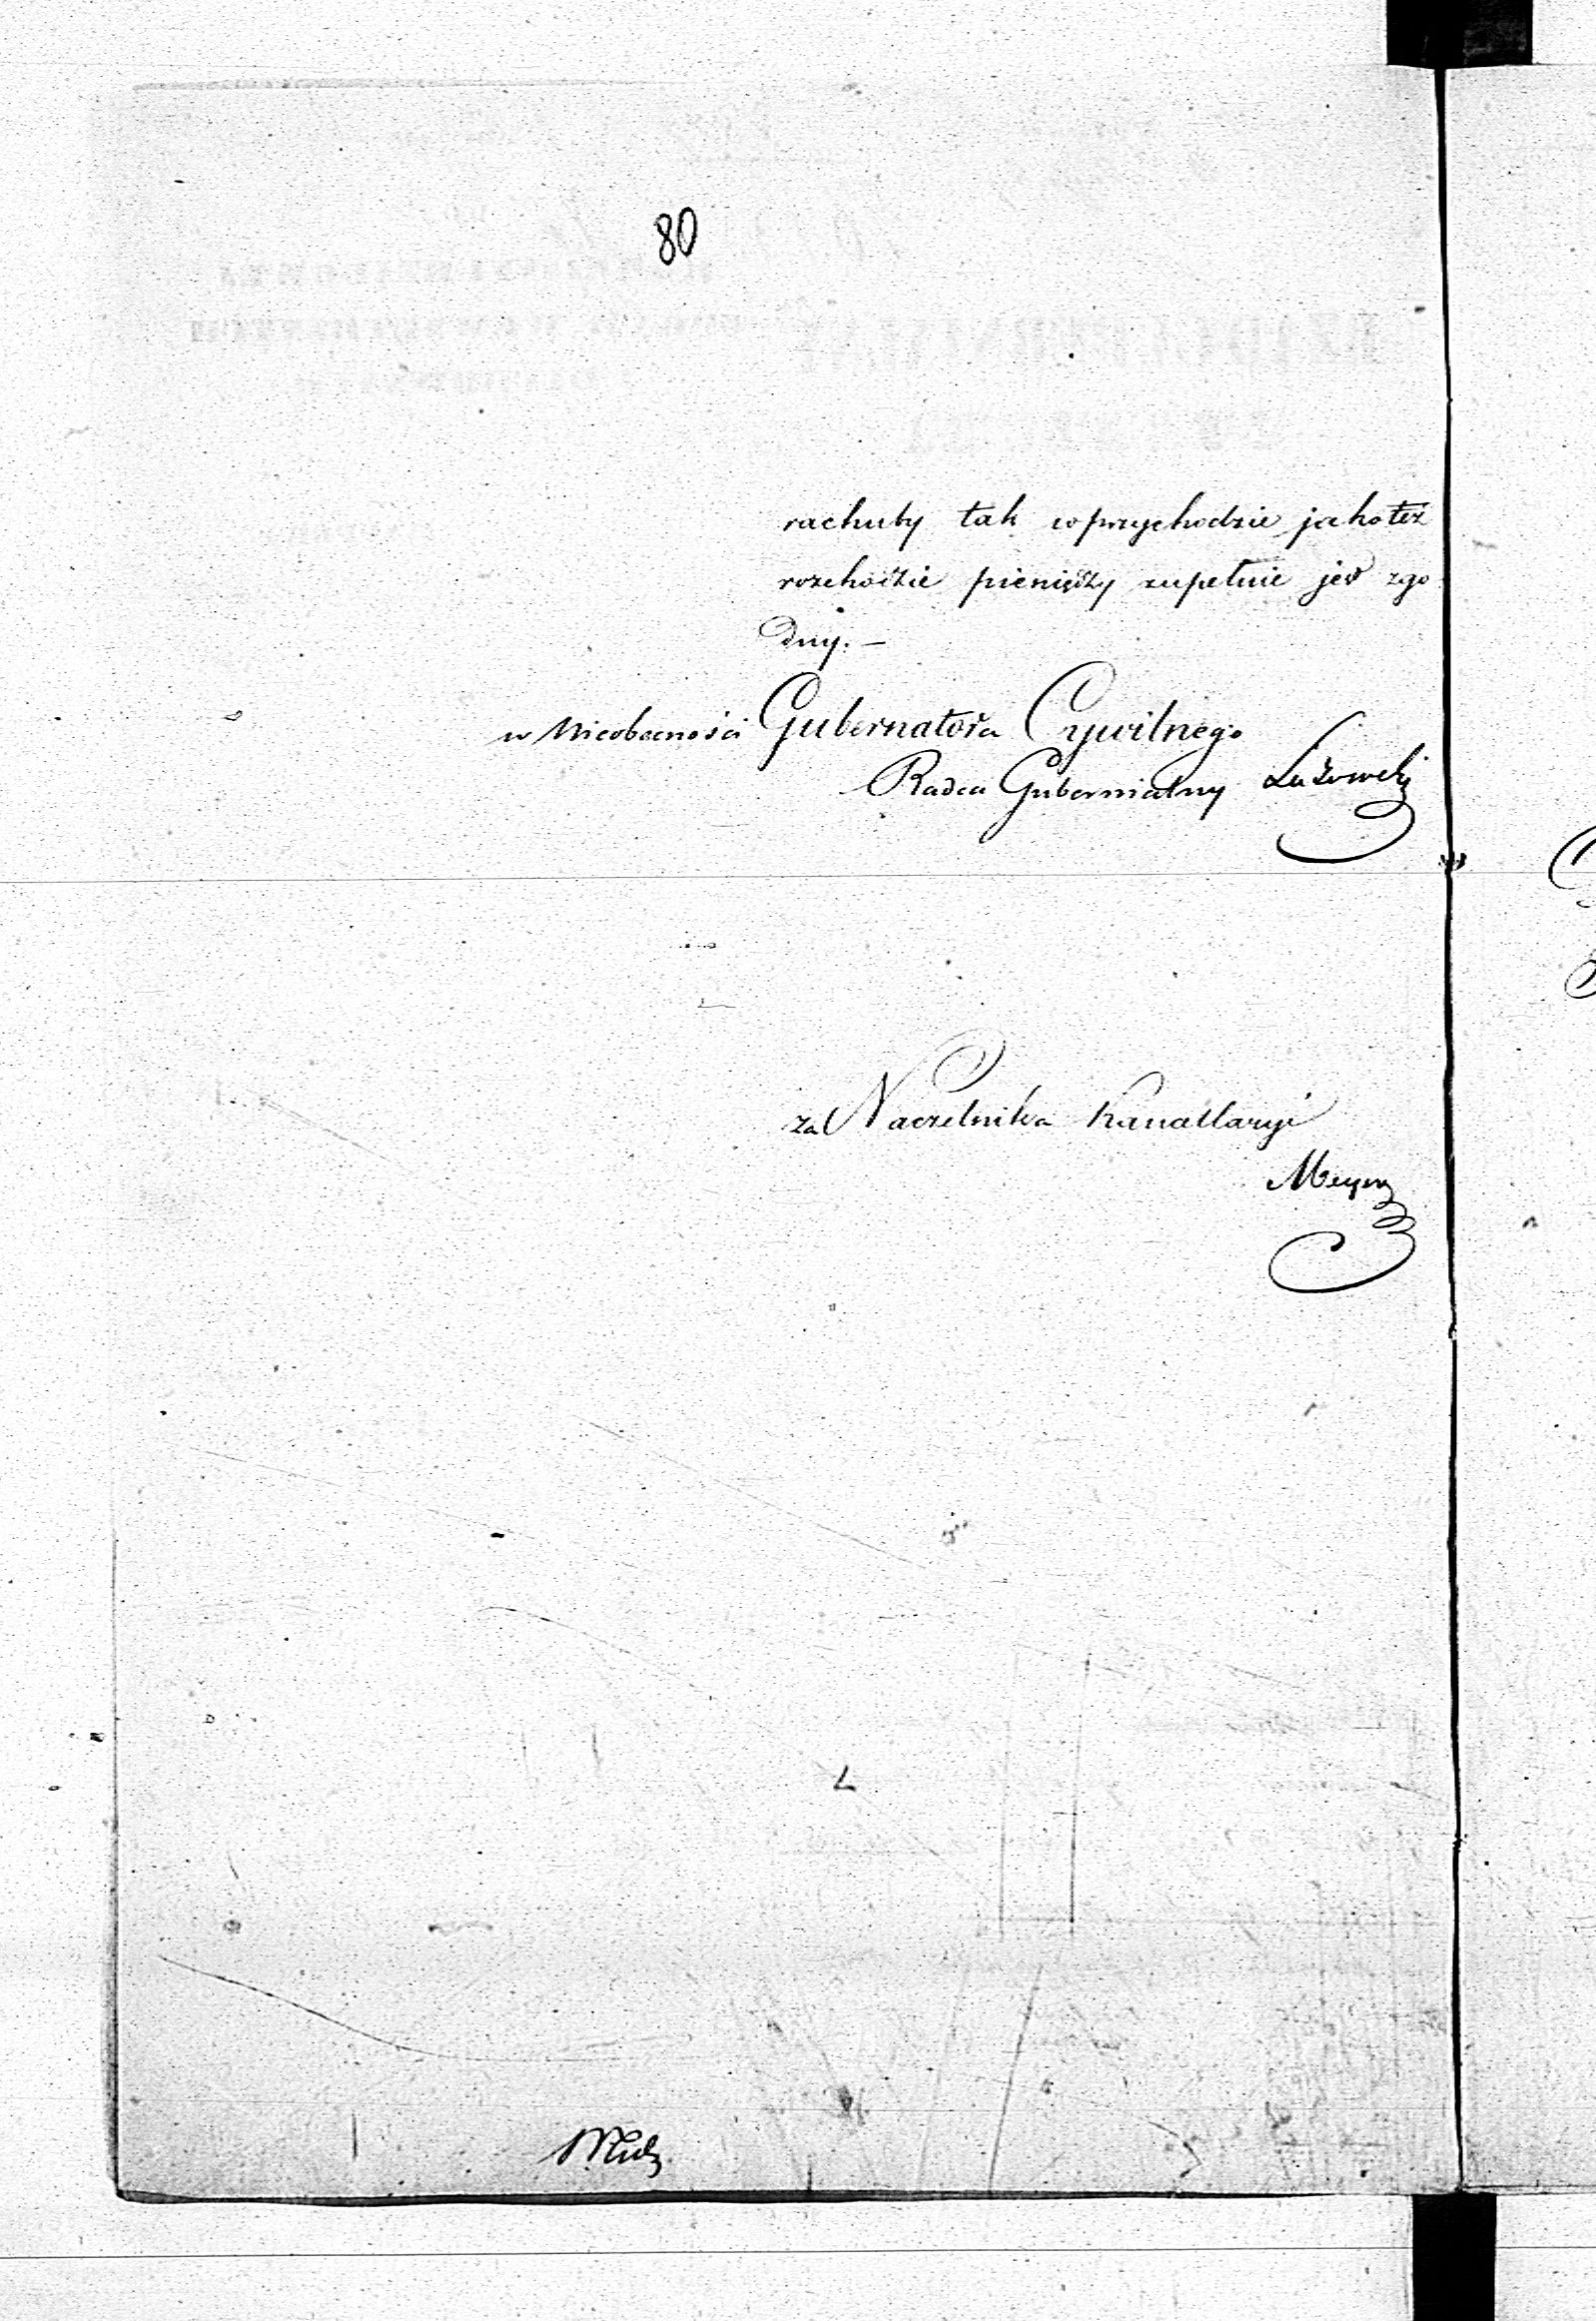 80
rachuby tak w przychodzie jako też
rozchodzie pieniędzy zupełnie jest zgo
dny. —
w Nieobecności Gubernatora Cywilnego
Radca Gubernialny
za Naczelnika Kancellaryi
Meyer